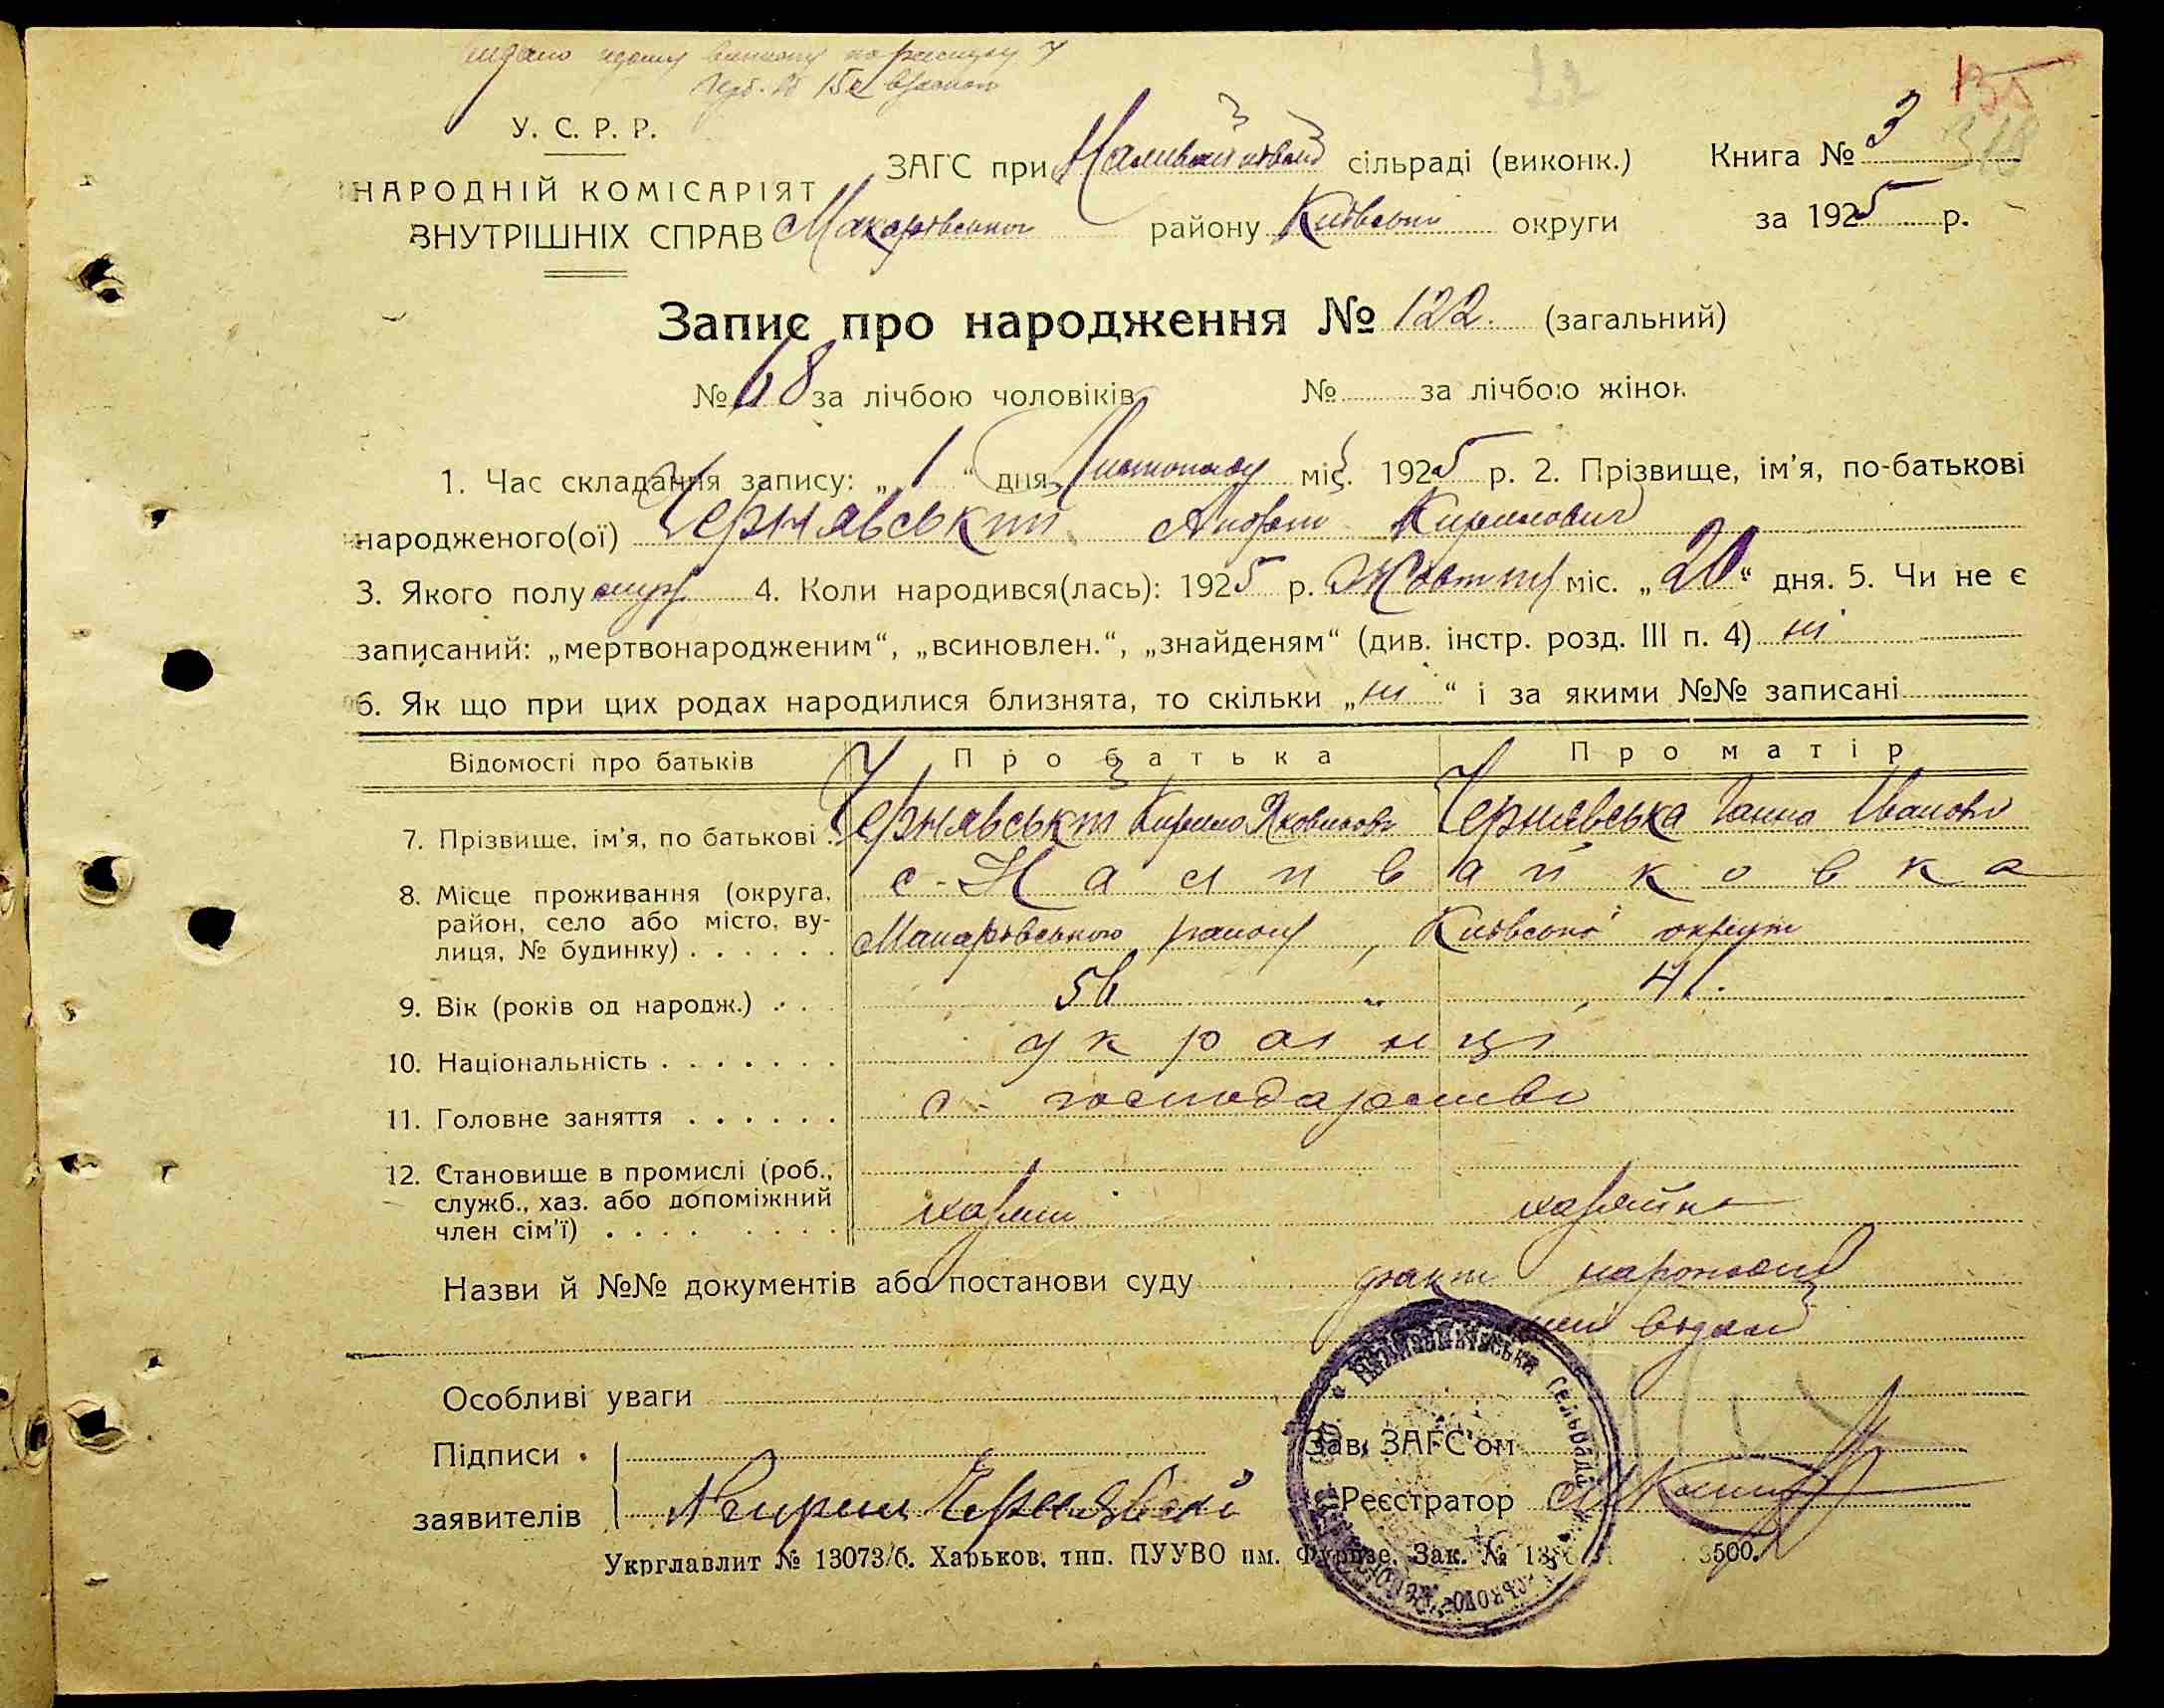 У. С. Р. Р.
НАРОДНІЙ КОМІСАРІЯТ
ВНУТРІШНІХ СПРАВ
ЗАГС при сільраді (виконк.)
Макарівського району Київської округи
Книга № 3
за 1925 р.
Запис про народження № 122. (загальний)
№ 68 за лічбою чоловіків № за лічбою жінок
1. Час складання запису: „ 1 “ дня Листопаду міс. 1925 р. 2. Прізвище, ім'я, по-батькові
народженого(ої) Чернявський Андрей Кирилович
3. Якого полу муж. 4. Коли народився(лась): 1925 р. Жовтня міс. „ 20 “ дня. 5. Чи не є
записаний: „мертвонародженим“, „всиновлен.“, „знайденям“ (див. інстр. розд. III п. 4) ні
6. Як що при цих родах народилися близнята, то скільки „ ні “ і за якими №№ записані
Відомості про батьків Про батька Про матір
7. Прізвище, ім'я, по батькові . Чернявський Кирило Яковлевич Чернявська Ганна Іванова
8. Місце проживання (округа, с. Наливайковка
район, село або місто, ву- Макарівського району, Київської округи
лиця, № будинку) . . . . . .
9. Вік (років од народж.) . . . 56 41.
10. Національність . . . . . . . українці
11. Головне заняття . . . . . . с. господарство
12. Становище в промислі (роб.,
служб., хаз. або допоміжний хазяїн хазяйка
член сім'ї) . . . . . . . .
Назви й №№ документів або постанови суду факт народження
Особливі уваги
Підписи
заявителів
Кирил Чернявский
Зав. ЗАГС'ом
Реєстратор
Укрглавлит № 13073/б. Харьков, тип. ПУУВО им. Фрунзе. Зак. № 3500.